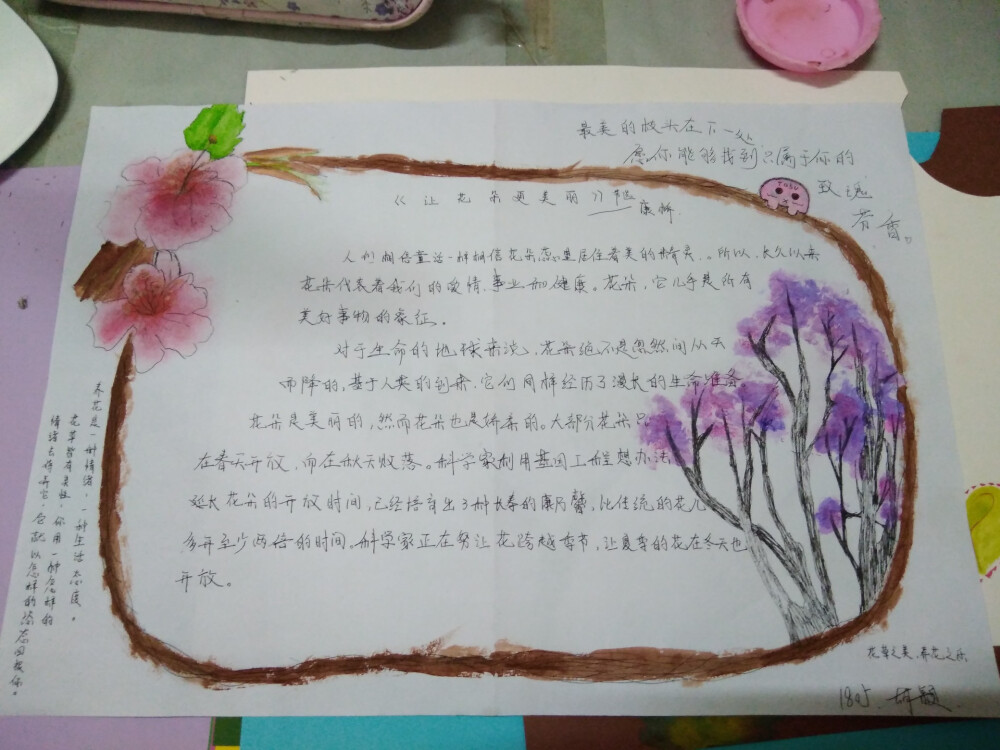 最美的枝头在下一处
愿你能够找到只属于你的
致远
芳香。
TUZU
《让花朵更美丽》节选
康桥
人们相信童话一样相信花朵总是居住着美的精灵。所以,长久以来
花朵代表着我们的爱情、事业和健康。花朵,它几乎是所有
美好事物的象征。
对于生命的地球来说,花朵绝不是忽然间从天
而降的,基于人类的到来,它们同样经历了漫长的生命准备。
花朵是美丽的,然而花朵也是娇柔的。大部分花朵只
在春天开放,而在秋天败落。科学家利用基因工程想办法
延长花朵的开放时间,已经培育出3种长寿的康乃馨,比传统的花儿
多开至少两倍的时间。科学家正在努让花跨越季节,让夏季的花在冬天也
开放。
养花是一种情绪,一种生活态度。
花草皆有灵性,你用一种怎样的
情绪去将养它,它就以怎样的姿态回报你。
花草之美、养花之乐
胡颖